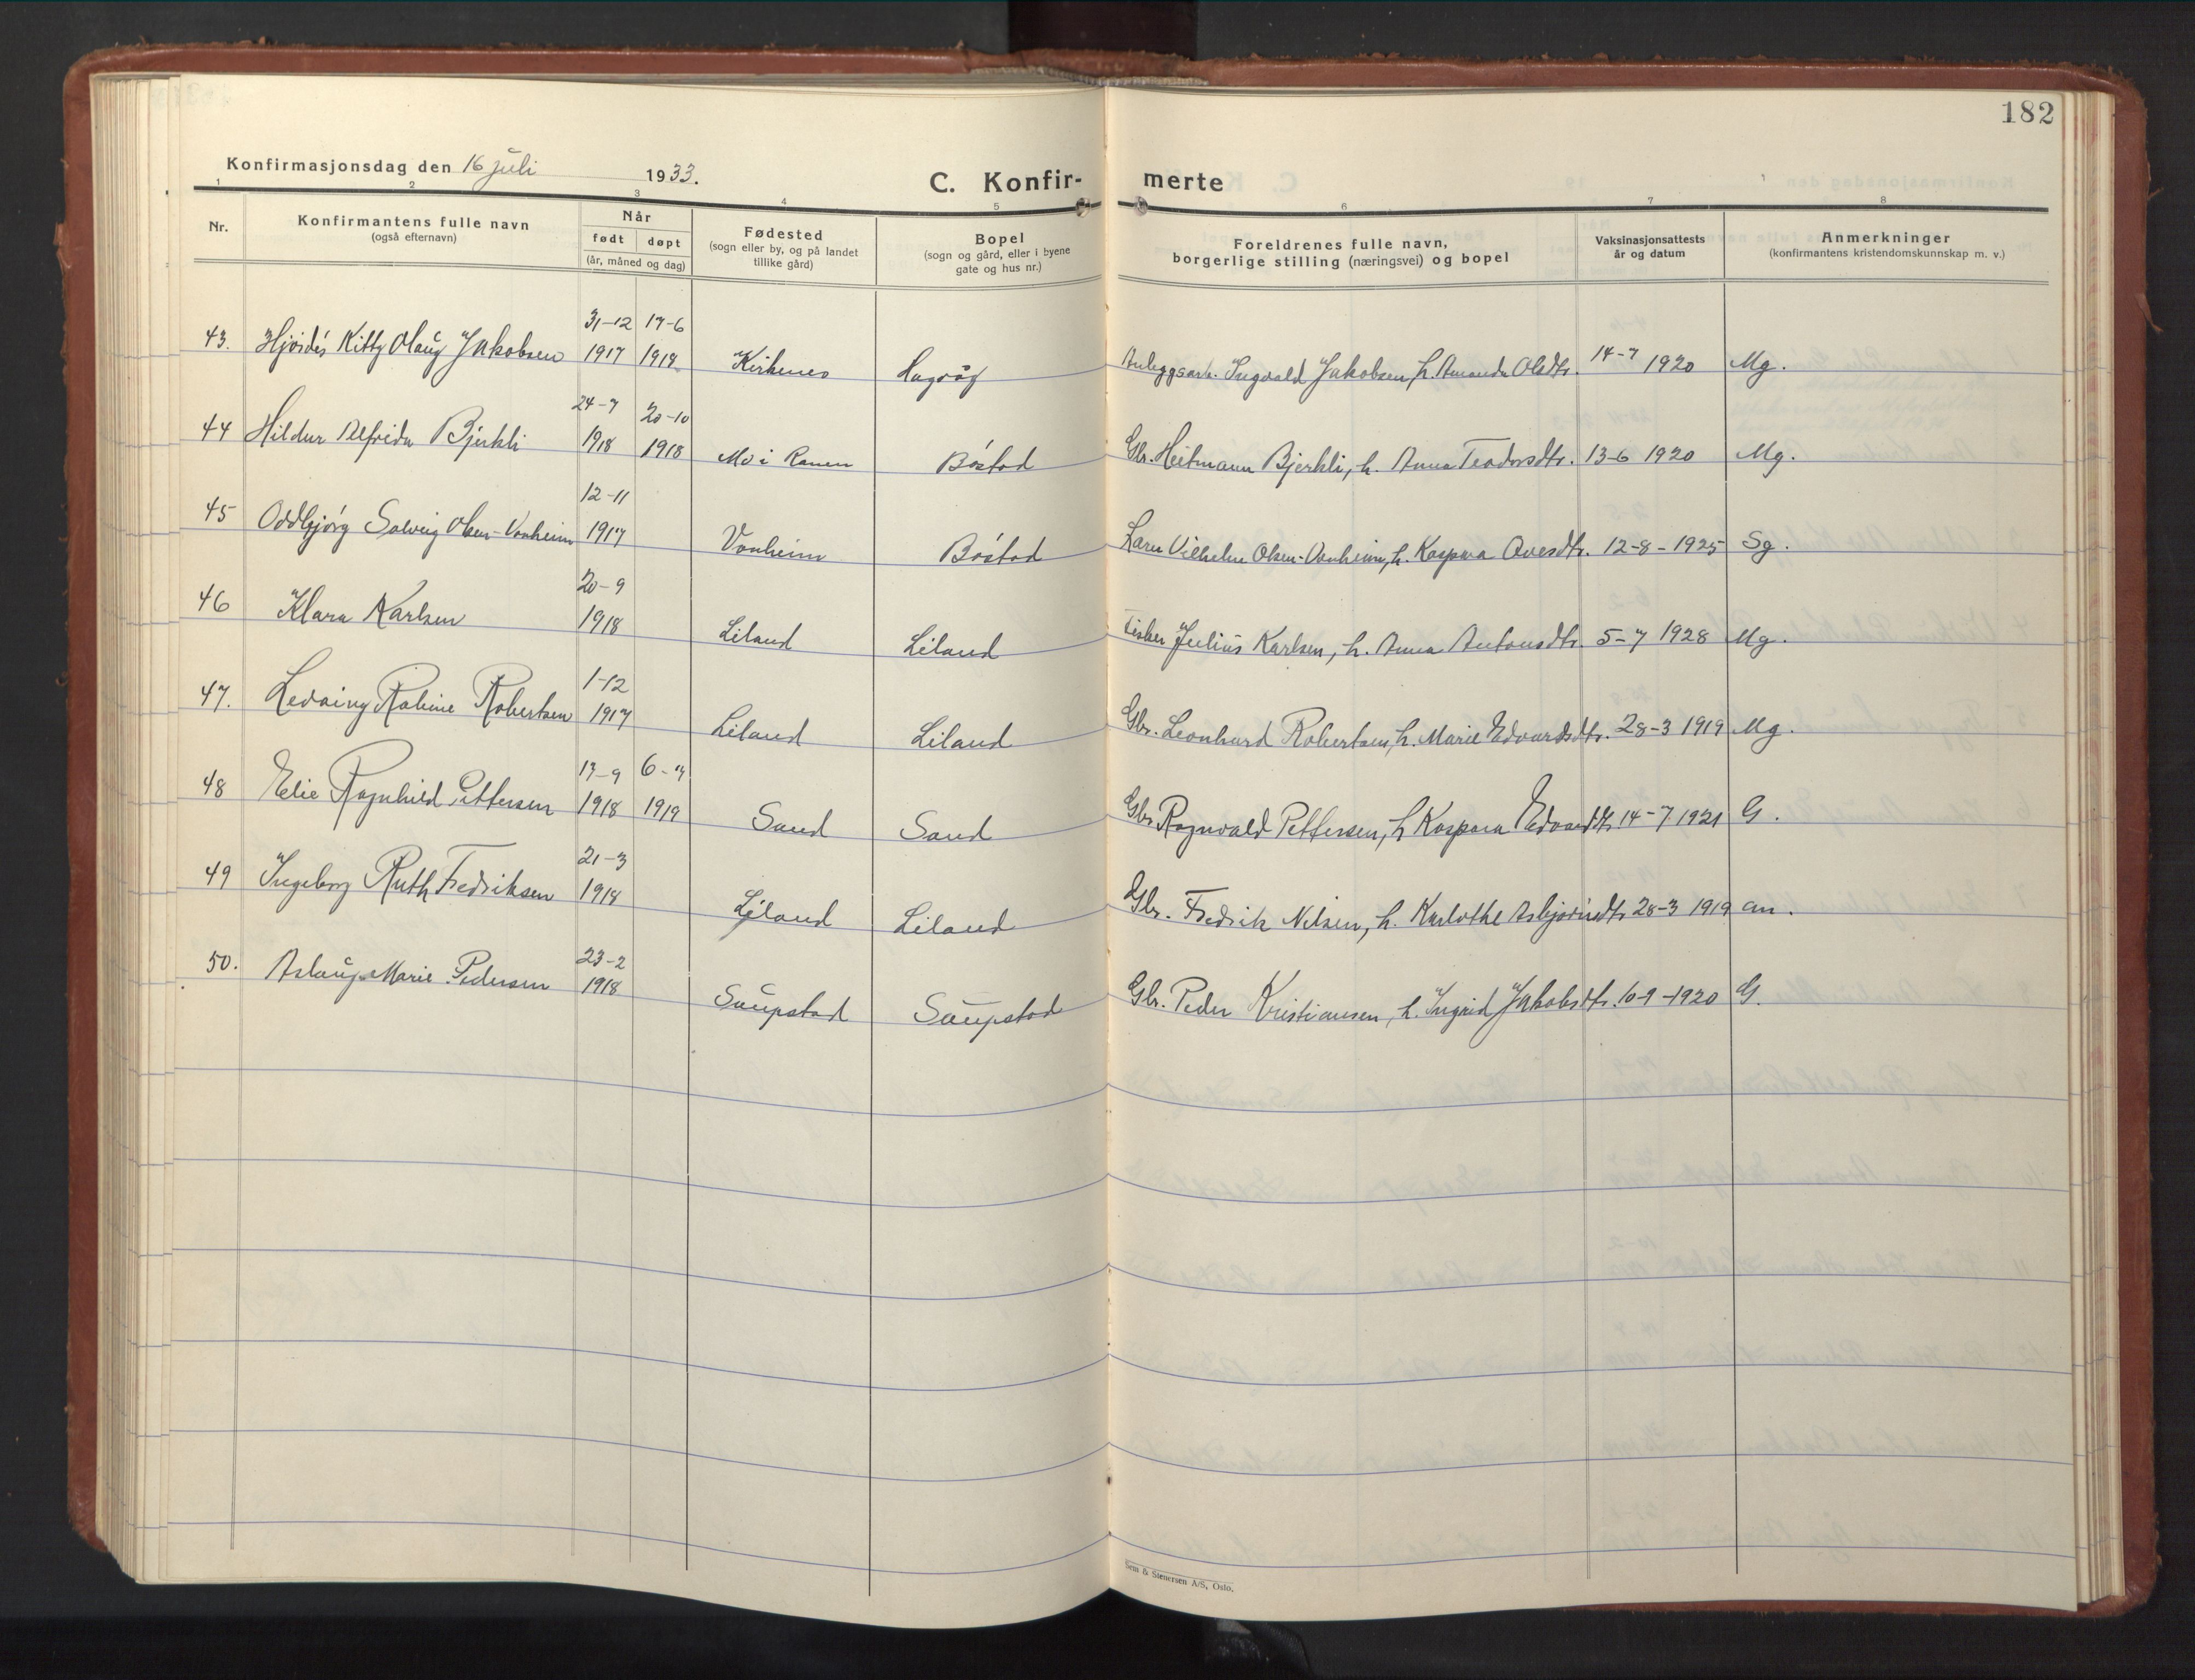 182
Konfirmasjonsdag den 16 juli 1933.
C. Konfir- merte
1 2 3 4 5 6 7 8
Nr.
Konfirmantens fulle navn
(også efternavn)
Når
født døpt
(år, måned og dag)
Fødested
(sogn eller by, og på landet
tillike gård)
Bopel
(sogn og gård, eller i byene
gate og hus nr.)
Foreldrenes fulle navn,
borgerlige stilling (næringsvei) og bopel
Vaksinasjonsattests
år og datum
Anmerkninger
(konfirmantens kristendomskunnskap m. v.)
31-12 17-6
43. Hjørdis Kitty Olaug Jakobsen 1917 1918 Kirkenes Anleggsarb. Ingvald Jakobsen, h. Amanda Olsdtr. 14-7 1920 Mg.
24-7 20-10
44 Hildur Alfrida Bjerkli 1918 1918 Mo i Ranen Bøstad Gbr. Heitmann Bjerkli, h. Anna Teodorsdtr. 13-6 1920 Mg.
12-11
45 Oddbjørg Solveig Olsen-Vonheim 1917 Vonheim Bøstad Vilhelm Olsen-Vonheim, h. Kaspara Ovesdtr. 12-8-1925 Sg.
20-9
46 Klara Karlsen 1918 Liland Liland Fisker Julius Karlsen, h. Anna Antonsdtr. 5-7 1928 Mg.
1-12
47. Ledaing Robine Robertsen 1917 Liland Liland Gbr. Leonhard Robertsen, h. Marie Edvardsdtr. 28-3 1919 Mg.
17-9 6-7
48 Elie Ragnhild Pettersen 1918 1919 Sand Sand Gbr. Ragnvald Pettersen, h. Kaspara Edvardsdtr. 14-7 1921 G.
21-3
49 Ingeborg Ruth Fredriksen 1918 Liland Liland Gbr. Fredrik Nilsen, h. Karlothe Asbjørnsdtr. 28-3 1919 an.
23-2
50. Aslaug Marie Pedersen 1918 Saupstad Saupstad Gbr. Peder Kristiansen, h. Ingrid Jakobsdtr. 10-9-1920 G.
Sem & Stenersen A/S, Oslo.